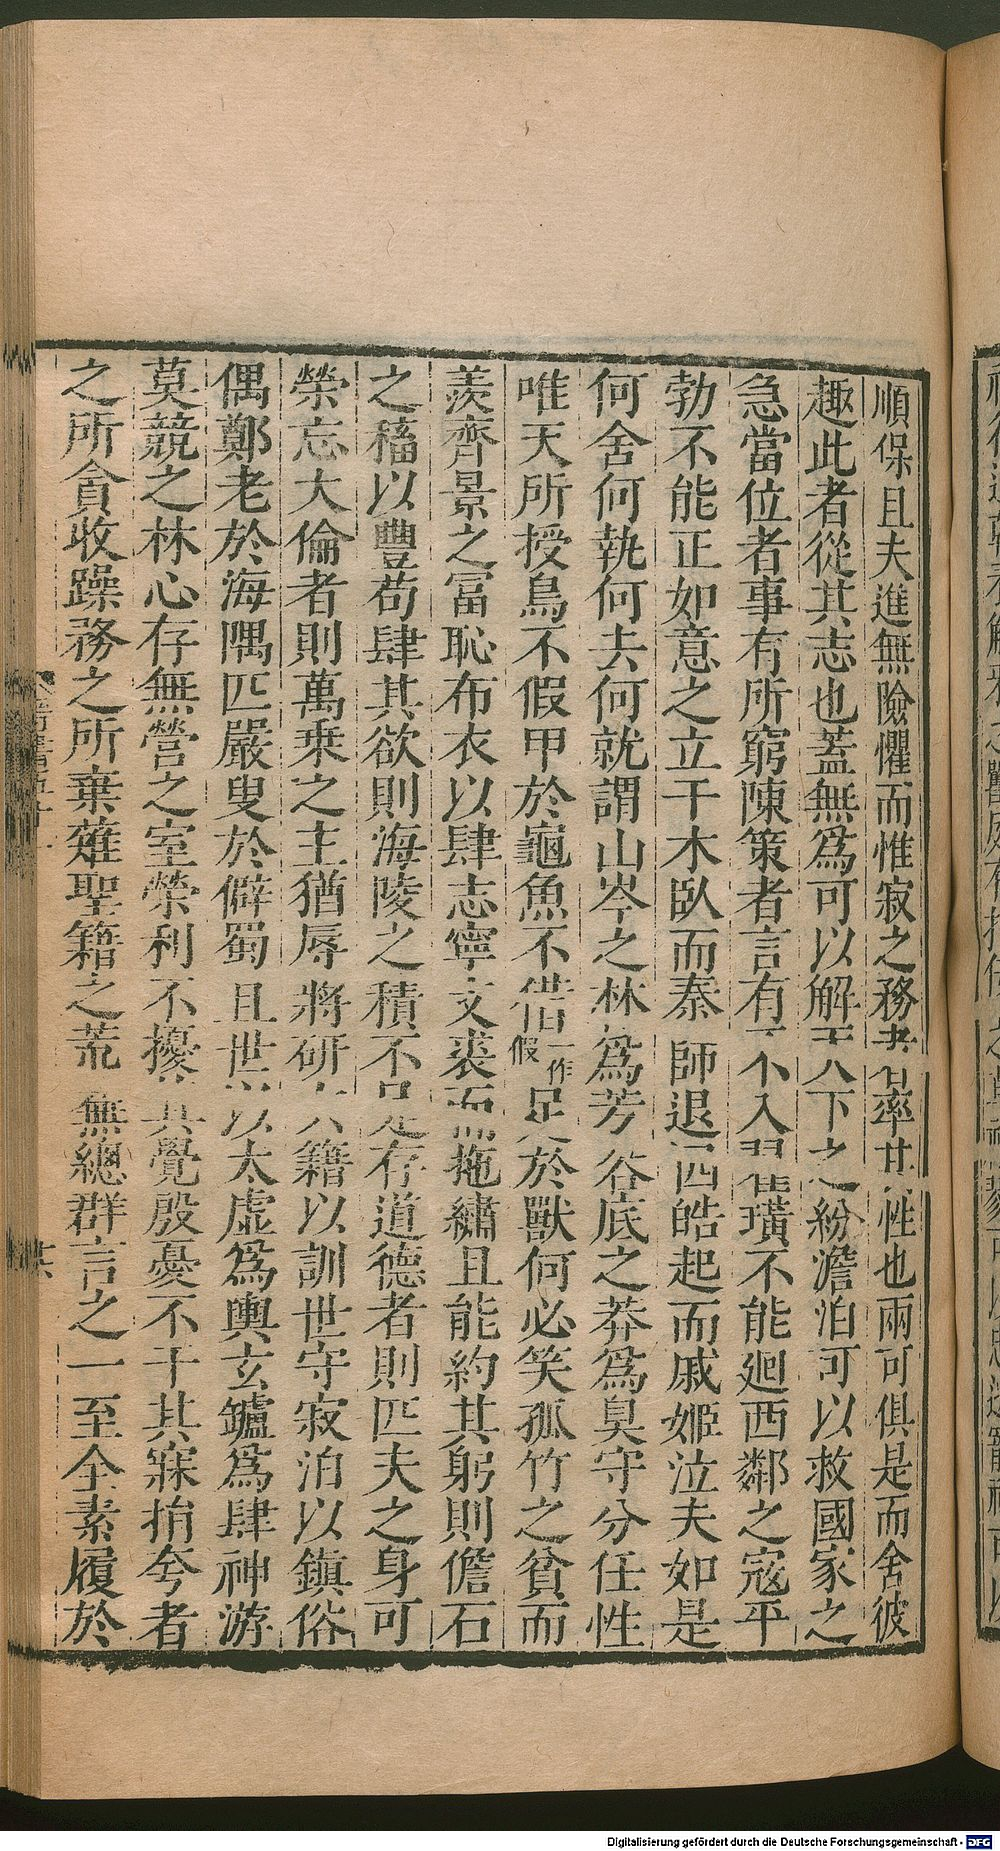 順保且夫進無險懼而惟寂之務者率其性也兩可俱是而舍彼
趣此者從其志也蓋無爲可以解天下之紛澹泊可以救國家之
急當位者事有所窮陳策者言有不入翟璜不能𢌞西鄰之寇平
勃不能正如意之立干木臥而秦師退四皓起而戚姬泣夫如是
何舍何執何去何就謂山岑之林爲芳谷底之莽爲臭守分任性
唯天所授鳥不假甲於龜魚不借一作假足於獸何必笑孤竹之貧而
羨齊景之冨恥布衣以肆志寧文裘而拖繡且能約其躬則儋石
之稸以豐苟肆其欲則海陵之積不足存道德者則匹夫之身可
榮忘大倫者則萬乗之主猶辱將研六籍以訓世守寂泊以鎮俗
偶鄭老於海隅匹嚴叟於僻蜀且世以太虛爲輿玄鑪爲肆神游
莫競之林心存無營之室榮利不擾其覺殷憂不干其寐捐夸者
之所貪收躁務之所棄薙聖籍之荒蕪總群言之一至全素履於
晉書五十一
Digitalisierung gefördert durch die Deutsche Forschungsgemeinschaft - DFG